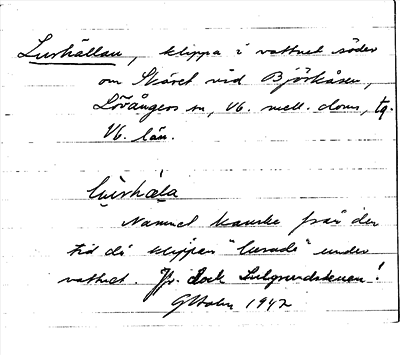 Lurhällan, klippa i vattnet söder
om Skäret vid Björkåsen,
Lövångers sn, Vb. mell. doms, tg.
Vb. län.
Lurhäla
Namnet kanske från den
tid då klippan "lurade" under
vattnet. Jfr. dock Lulgrundskenan!
GHolm 1942